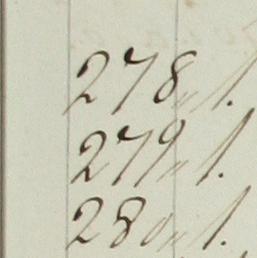 278 „ 1.
279 „ 1.
280 „ 1.